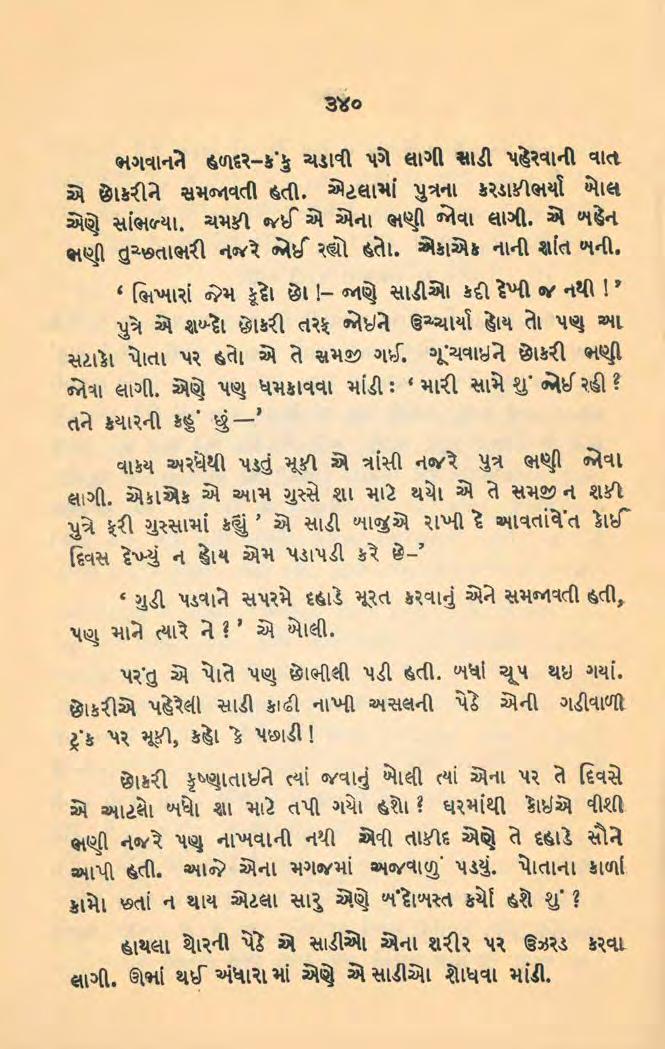 ૩૪૦
ભગવાનને હળદર–કંકુ ચડાવી પગે લાગી સાડી પહેરવાની વાત
એ છોકરીને સમજાવતી હતી. એટલામાં પુત્રના કરડાકીભર્યા બોલ
એણે સાંભળ્યા. ચમકી જઈ એ એના ભણી જોવા લાગી. એ બહેન
ભણી તુચ્છતાભરી નજરે જોઈ રહ્યો હતો. એકાએક નાની શાંત બની.
‘ ભિખારાં જેમ કૂદો છો !– જાણે સાડીઓ કદી દેખી જ નથી ! ’
પુત્રે એ શબ્દો છોકરી તરફ જોઇને ઉચ્ચાર્યા હોય તો પણ આ
સટાકો પોતા પર હતો એ તે સમજી ગઈ. ગૂંચવાઇને છોકરી ભણી
જોવા લાગી. એણે પણ ધમકાવવા માંડી : ‘ મારી સામે શું જોઈ રહી ?
તને ક્યારની કહું છું —’
વાક્ય અરધેથી પડતું મૂકી એ ત્રાંસી નજરે પુત્ર ભણી જોવા
લાગી. એકાએક એ આમ ગુસ્સે શા માટે થયો એ તે સમજી ન શકી
પુત્રે ફરી ગુસ્સામાં કહ્યું ’ એ સાડી બાજુએ રાખી દે આવતાંવેંત કોઈ
દિવસ દેખ્યું ન હોય એમ પડાપડી કરે છે–’
‘ ગુડી પડવાને સપરમે દહાડે મૂરત કરવાનું એને સમજાવતી હતી,
પણ માને ત્યારે ને ? ’ એ બોલી.
પરંતુ એ પોતે પણ છોભીલી પડી હતી. બધાં ચૂપ થઇ ગયાં.
છોકરીએ પહેરેલી સાડી કાઢી નાખી અસલની પેઠે એની ગડીવાળી
ટ્રંક પર મૂકી, કહો કે પછાડી !
છોકરી કૃષ્ણાતાઇને ત્યાં જવાનું બોલી ત્યાં એના પર તે દિવસે
એ આટલો બધો શા માટે તપી ગયો હશે ? ઘરમાંથી કોઇએ વીશી
ભણી નજરે પણ નાખવાની નથી એવી તાકીદ એણે તે દહાડે સૌને
આપી હતી. આજે એના મગજમાં અજવાળું પડયું. પોતાના કાળાં
કામો છતાં ન થાય એટલા સારુ એણે બંદોબસ્ત કર્યો હશે શું ?
હાથલા થોરની પેઠે એ સાડીઓ એના શરીર પર ઉઝરડ કરવા
લાગી. ઊભાં થઈ અંધારામાં એણે એ સાડીઓ શોધવા માંડી.